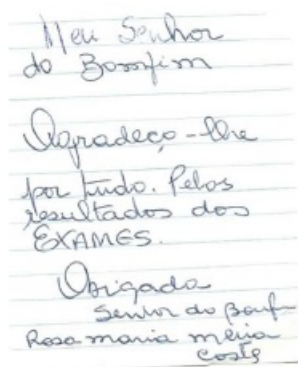 Meu Senhor
do Bomfim
Agradeço-lhe
por tudo. Pelos
resultados dos
EXAMES.
Obrigada
Senhor do Bonf
Rosa maria meira
Costa